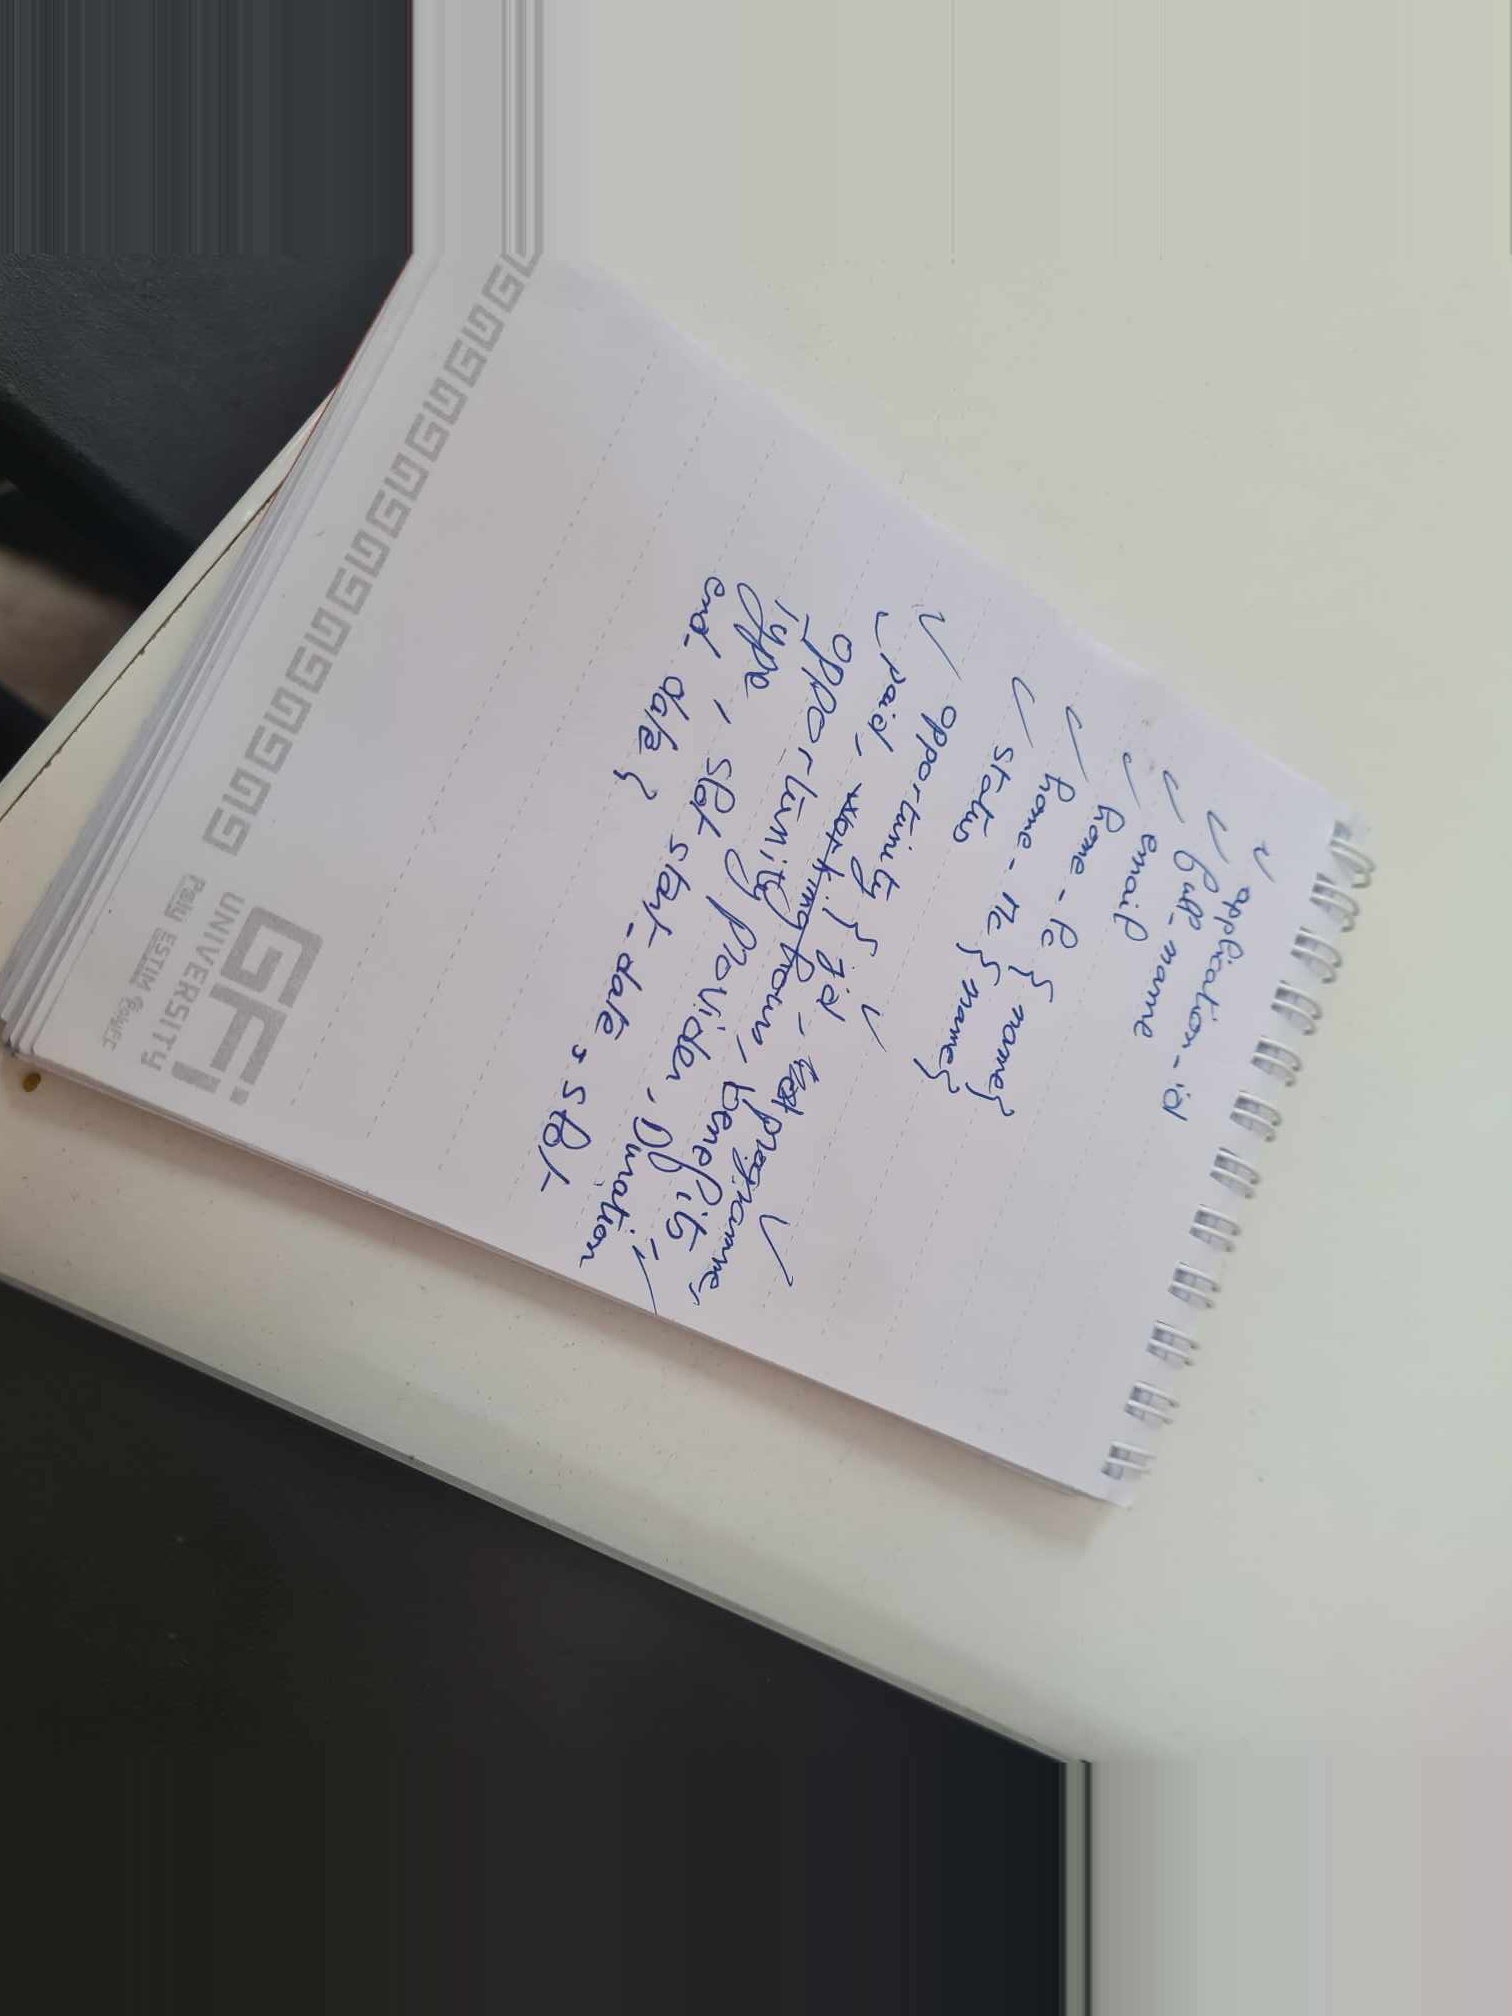 ✓ application-id
✓ full-name
✓ email
✓ home-lc { name}
✓ home-mc { name}
✓ status
✓ opportunity { id, programme,
paid, working hours, benefits,
opportunity provider, Duration
Type, slot start-date, slot
end-date }
GFi
UNIVERSITY